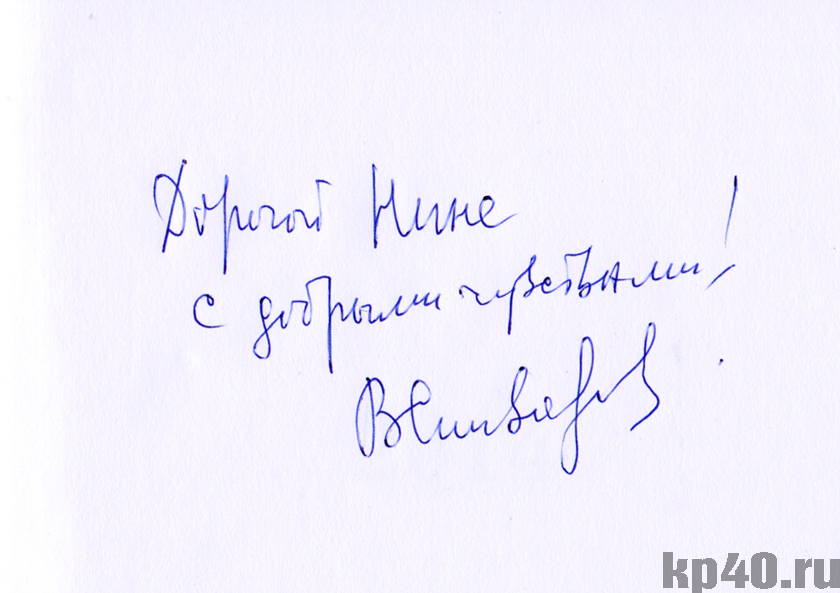 Дорогой Нине
с добрыми чувствами!
kp40.ru